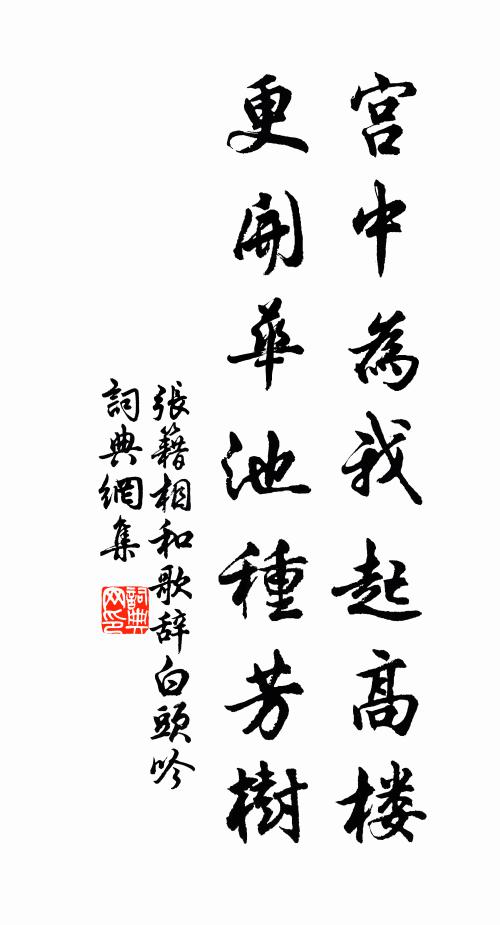 宫中為我起高楼
更開華池種芳樹
張籍相和歌辞白頭吟
詞典網集
詞典网印